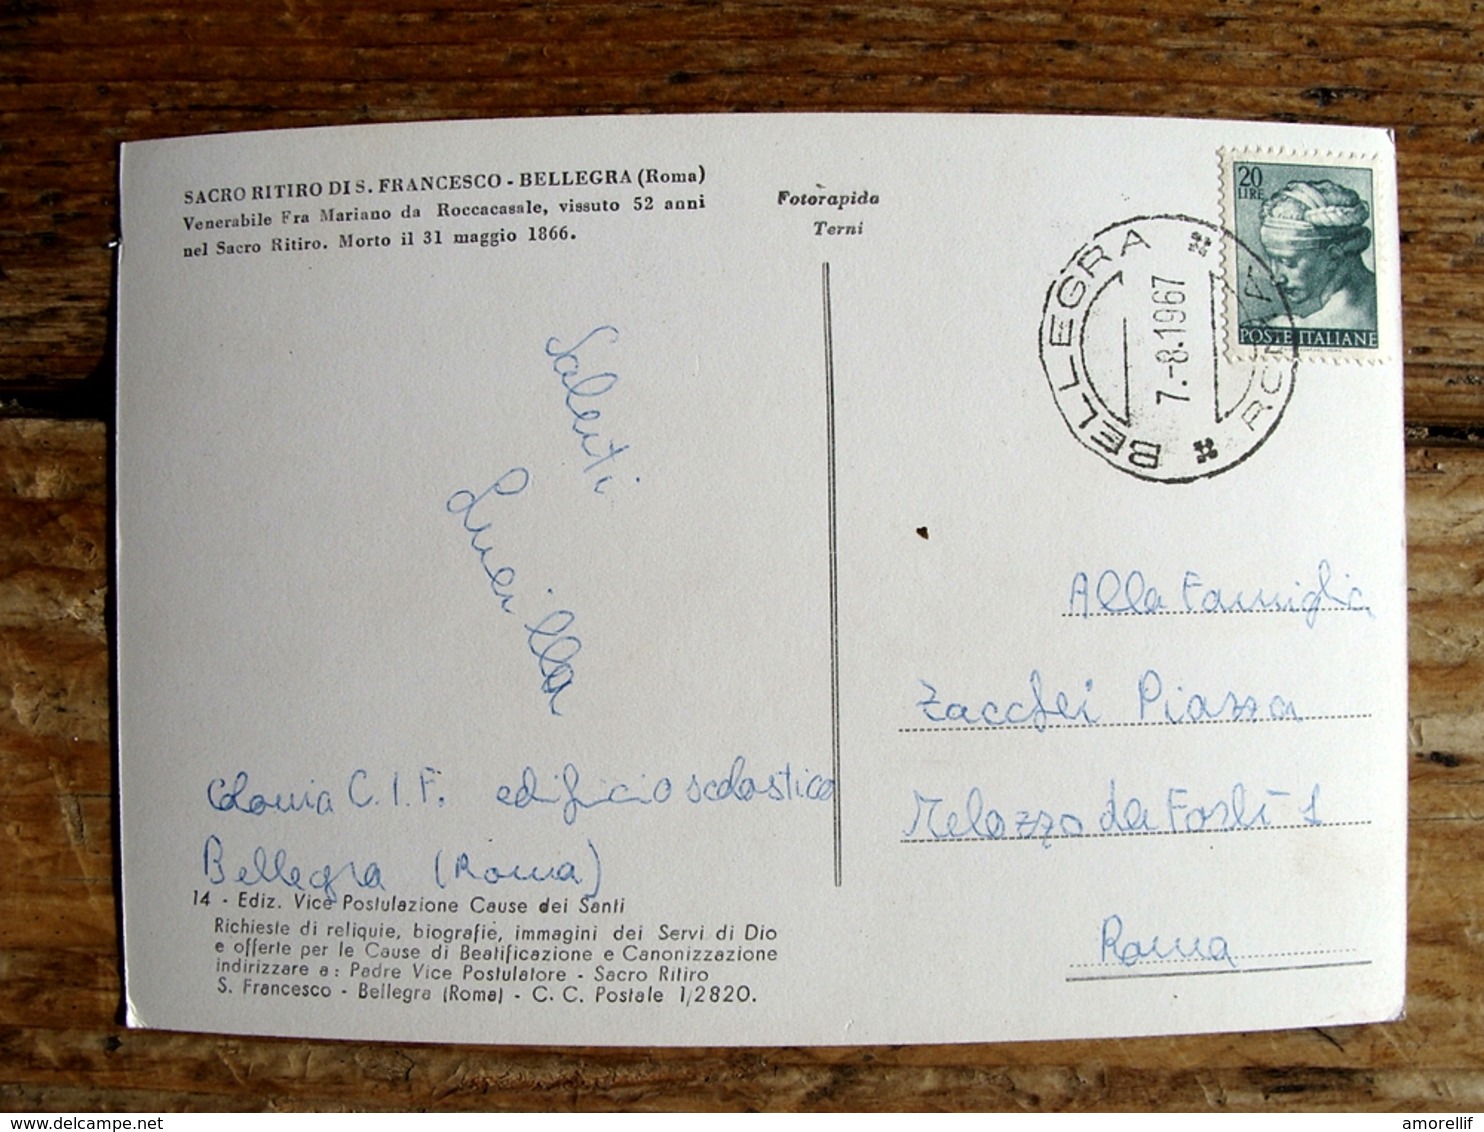 SACRO RITIRO DI S. FRANCESCO - BELLEGRA (Roma)
Venerabile Fra Mariano da Roccacasale, vissuto 52 anni
nel Sacro Ritiro. Morto il 31 maggio 1866.
Fotorapida
Terni
20
LIRE
POSTE ITALIANE
BELLEGRA
ROMA
7.-8.1967
Saluti
Lucilla
Colonia C.I.F. edificio scolastico
Bellegra (Roma)
Alla Famiglia
Zacchei Piazza
Melozzo da Forlì 1
Roma
14 - Ediz. Vice Postulazione Cause dei Santi
Richieste di reliquie, biografie, immagini dei Servi di Dio
e offerte per le Cause di Beatificazione e Canonizzazione
indirizzare a: Padre Vice Postulatore - Sacro Ritiro
S. Francesco - Bellegra (Roma) - C. C. Postale 1/2820.
amorellif
www.delcampe.net